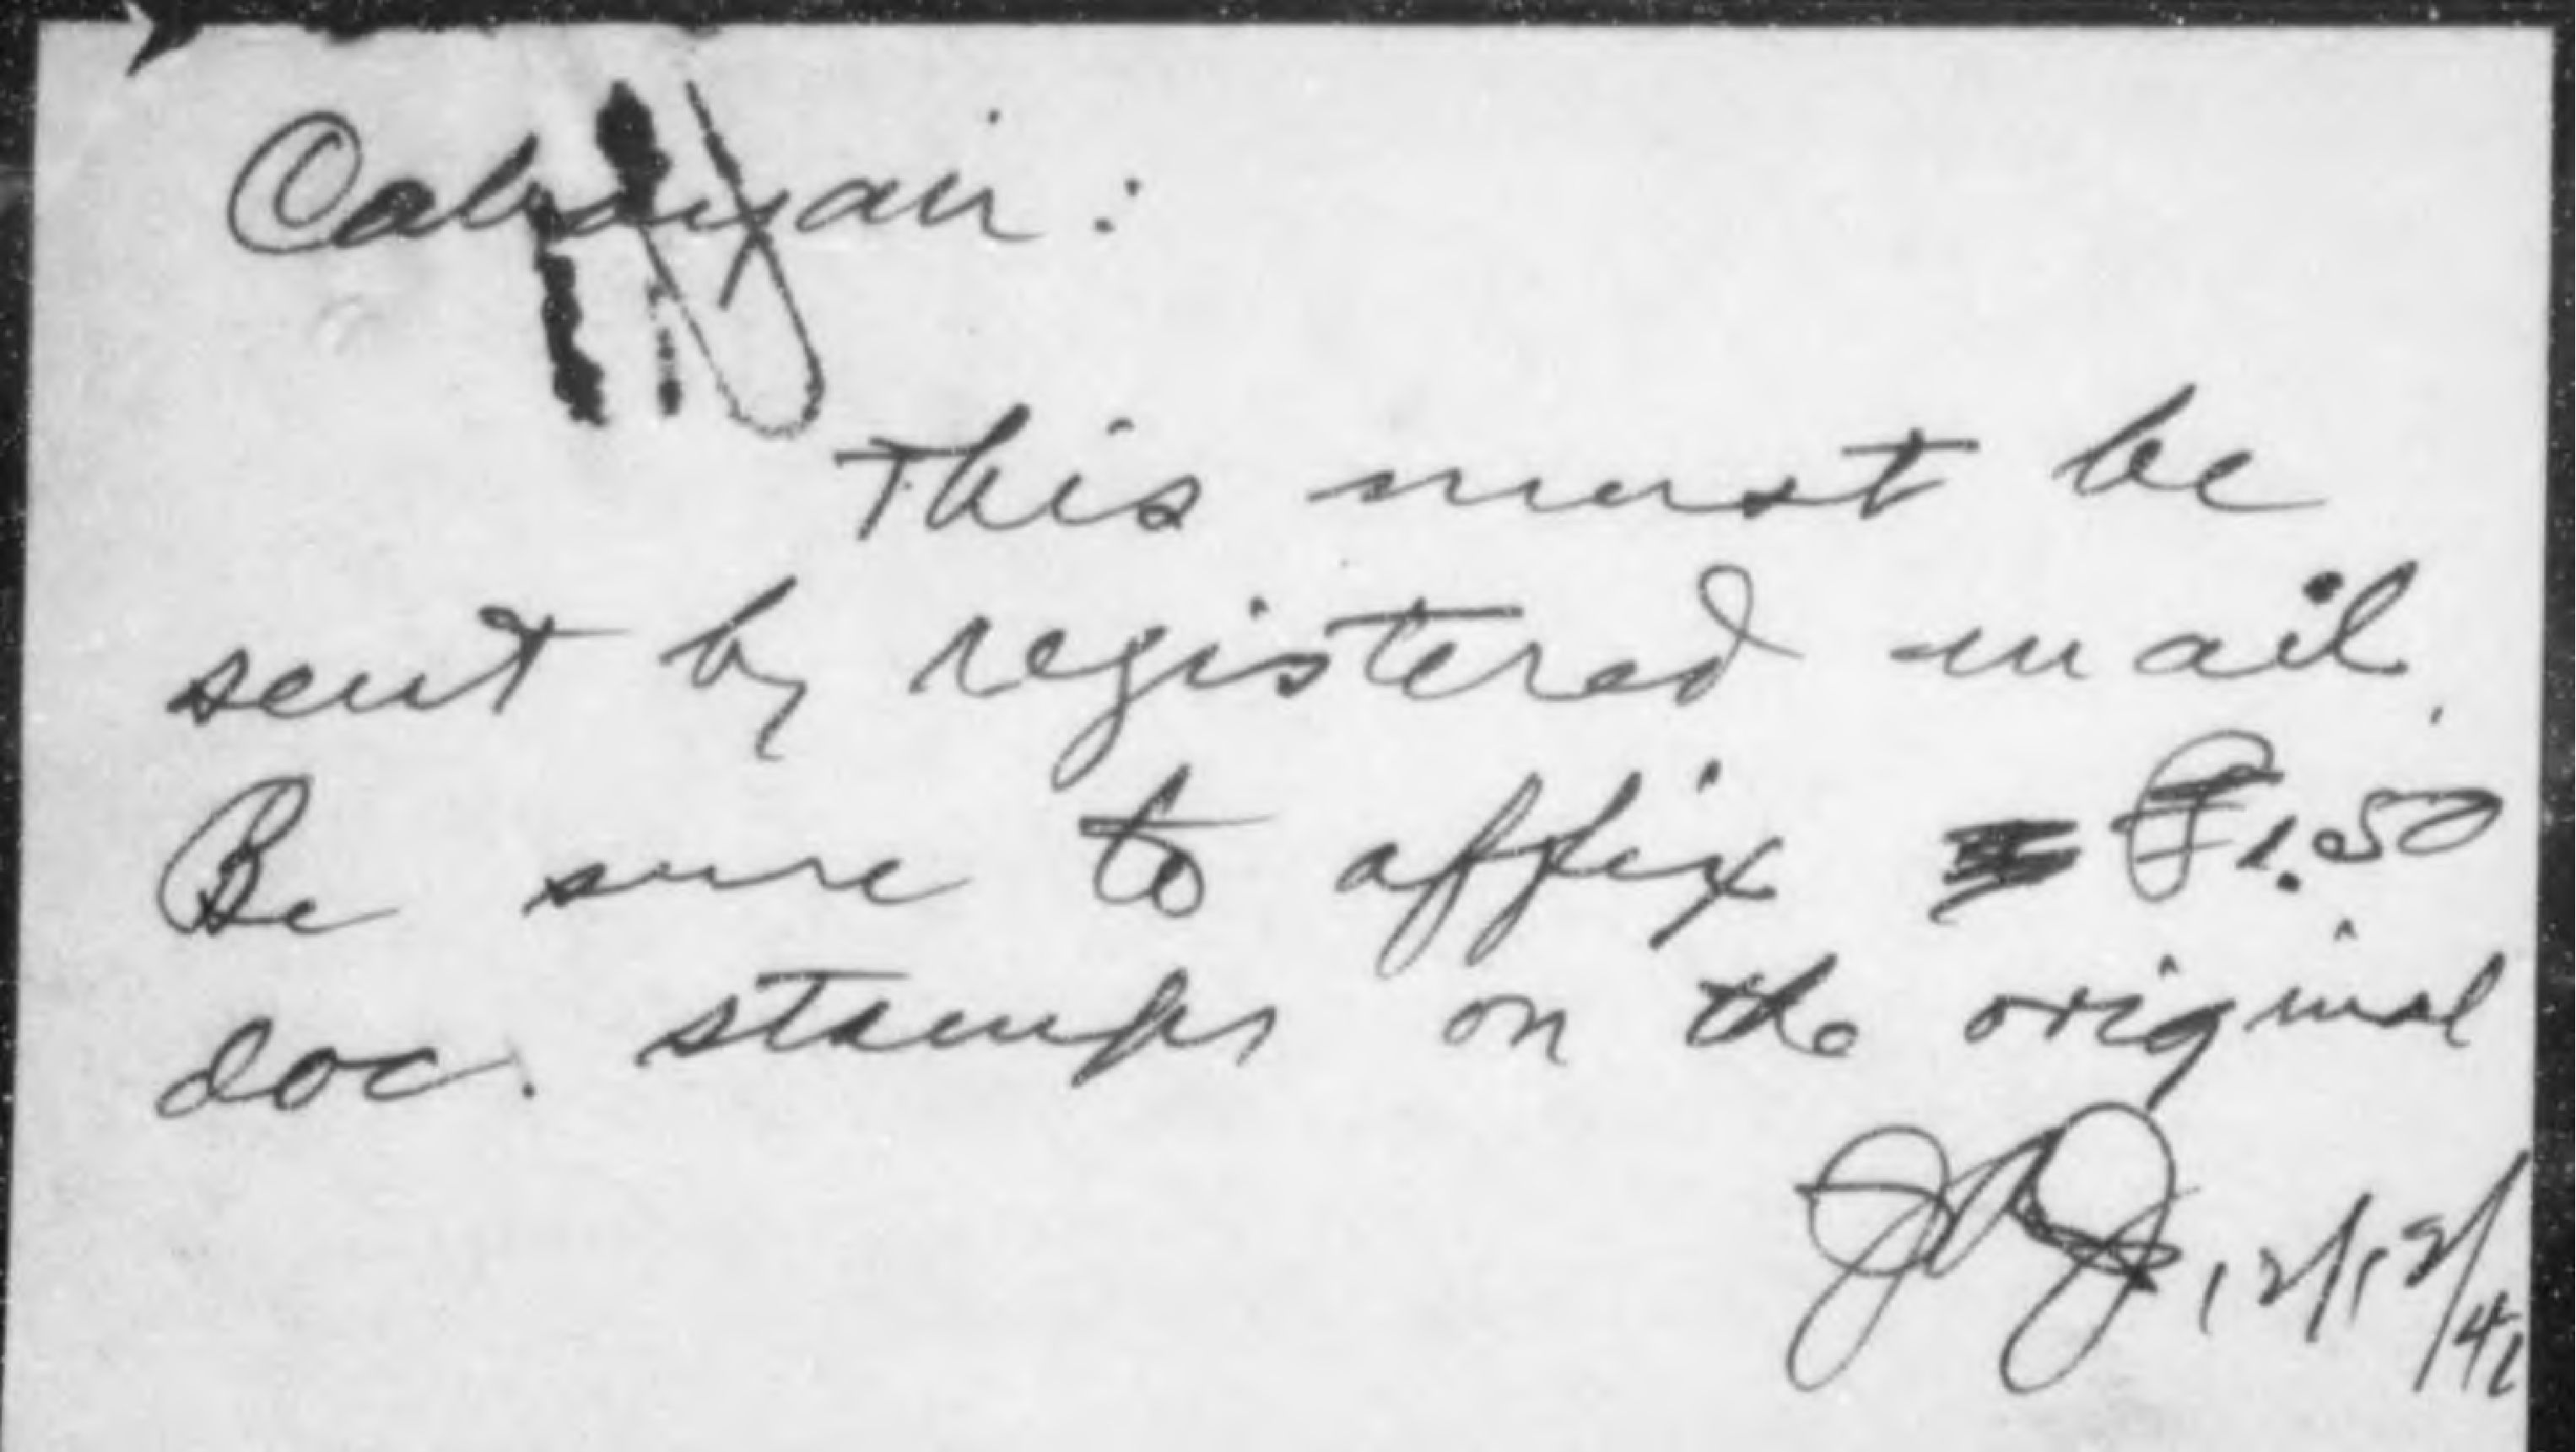 Cabangan:
This must be
sent by registered mail.
Be sure to affix ₱1.50
doc. stamps on the original
12/12/41